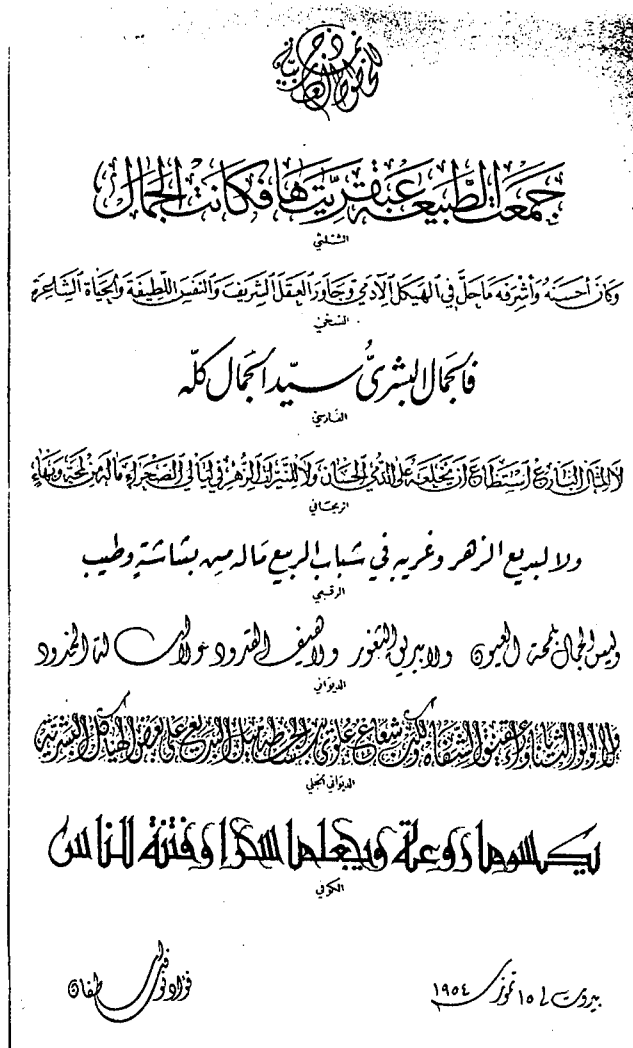 نماذج الخطوط العربية
جَمَعَت الطَّبيعَة عَبْقَريَّتَهَا فكَانَت الجَمَال
الثلثي
وَكَانَ أَحْسَنَهُ وَأَشْرَفَهُ مَا حَلَّ فِي الهَيكل الآدَمِيِّ وَجَاوَرَ العَقلَ الشَّريفَ وَالنَّفسَ اللَّطِيفَةَ وَالحَيَاةَ الشَّاعِرَةَ
النسخي
فالجمال البشريُّ سيّد الجمال كلّه
الفارسي
لا للمثَّال البَارِع استطَاعَ أن يخلعَهُ عَلى الدُّمَى الحِسَان وَلا للنَّيِّرَات الزُّهر فِي ليَالي الصَّحرَاء مَا لَهُ مِن لمحَةٍ وَبَهَاء
الريحاني
ولا لبديع الزهر وغريبه في شباب الربيع مَا له من بشاشةٍ وطيب
الرقعي
وليس الجمال بلمحة العيون ولا ببريق الثغور ولا هيف القدود ولا أسالة الخدود
الديواني
ولا لؤلؤ الثنايا وراء عقيق الشفاه ولكن شعاع علوي يبسطه الجميل البديع على بعض الهياكل البشرية
الديواني الجلي
يكسوها روعة ويجعلها سحرا وفتنة للناس
الكوفي
بيروت في ١٥ تموز ١٩٥٤
فؤاد نوفل اسطفان